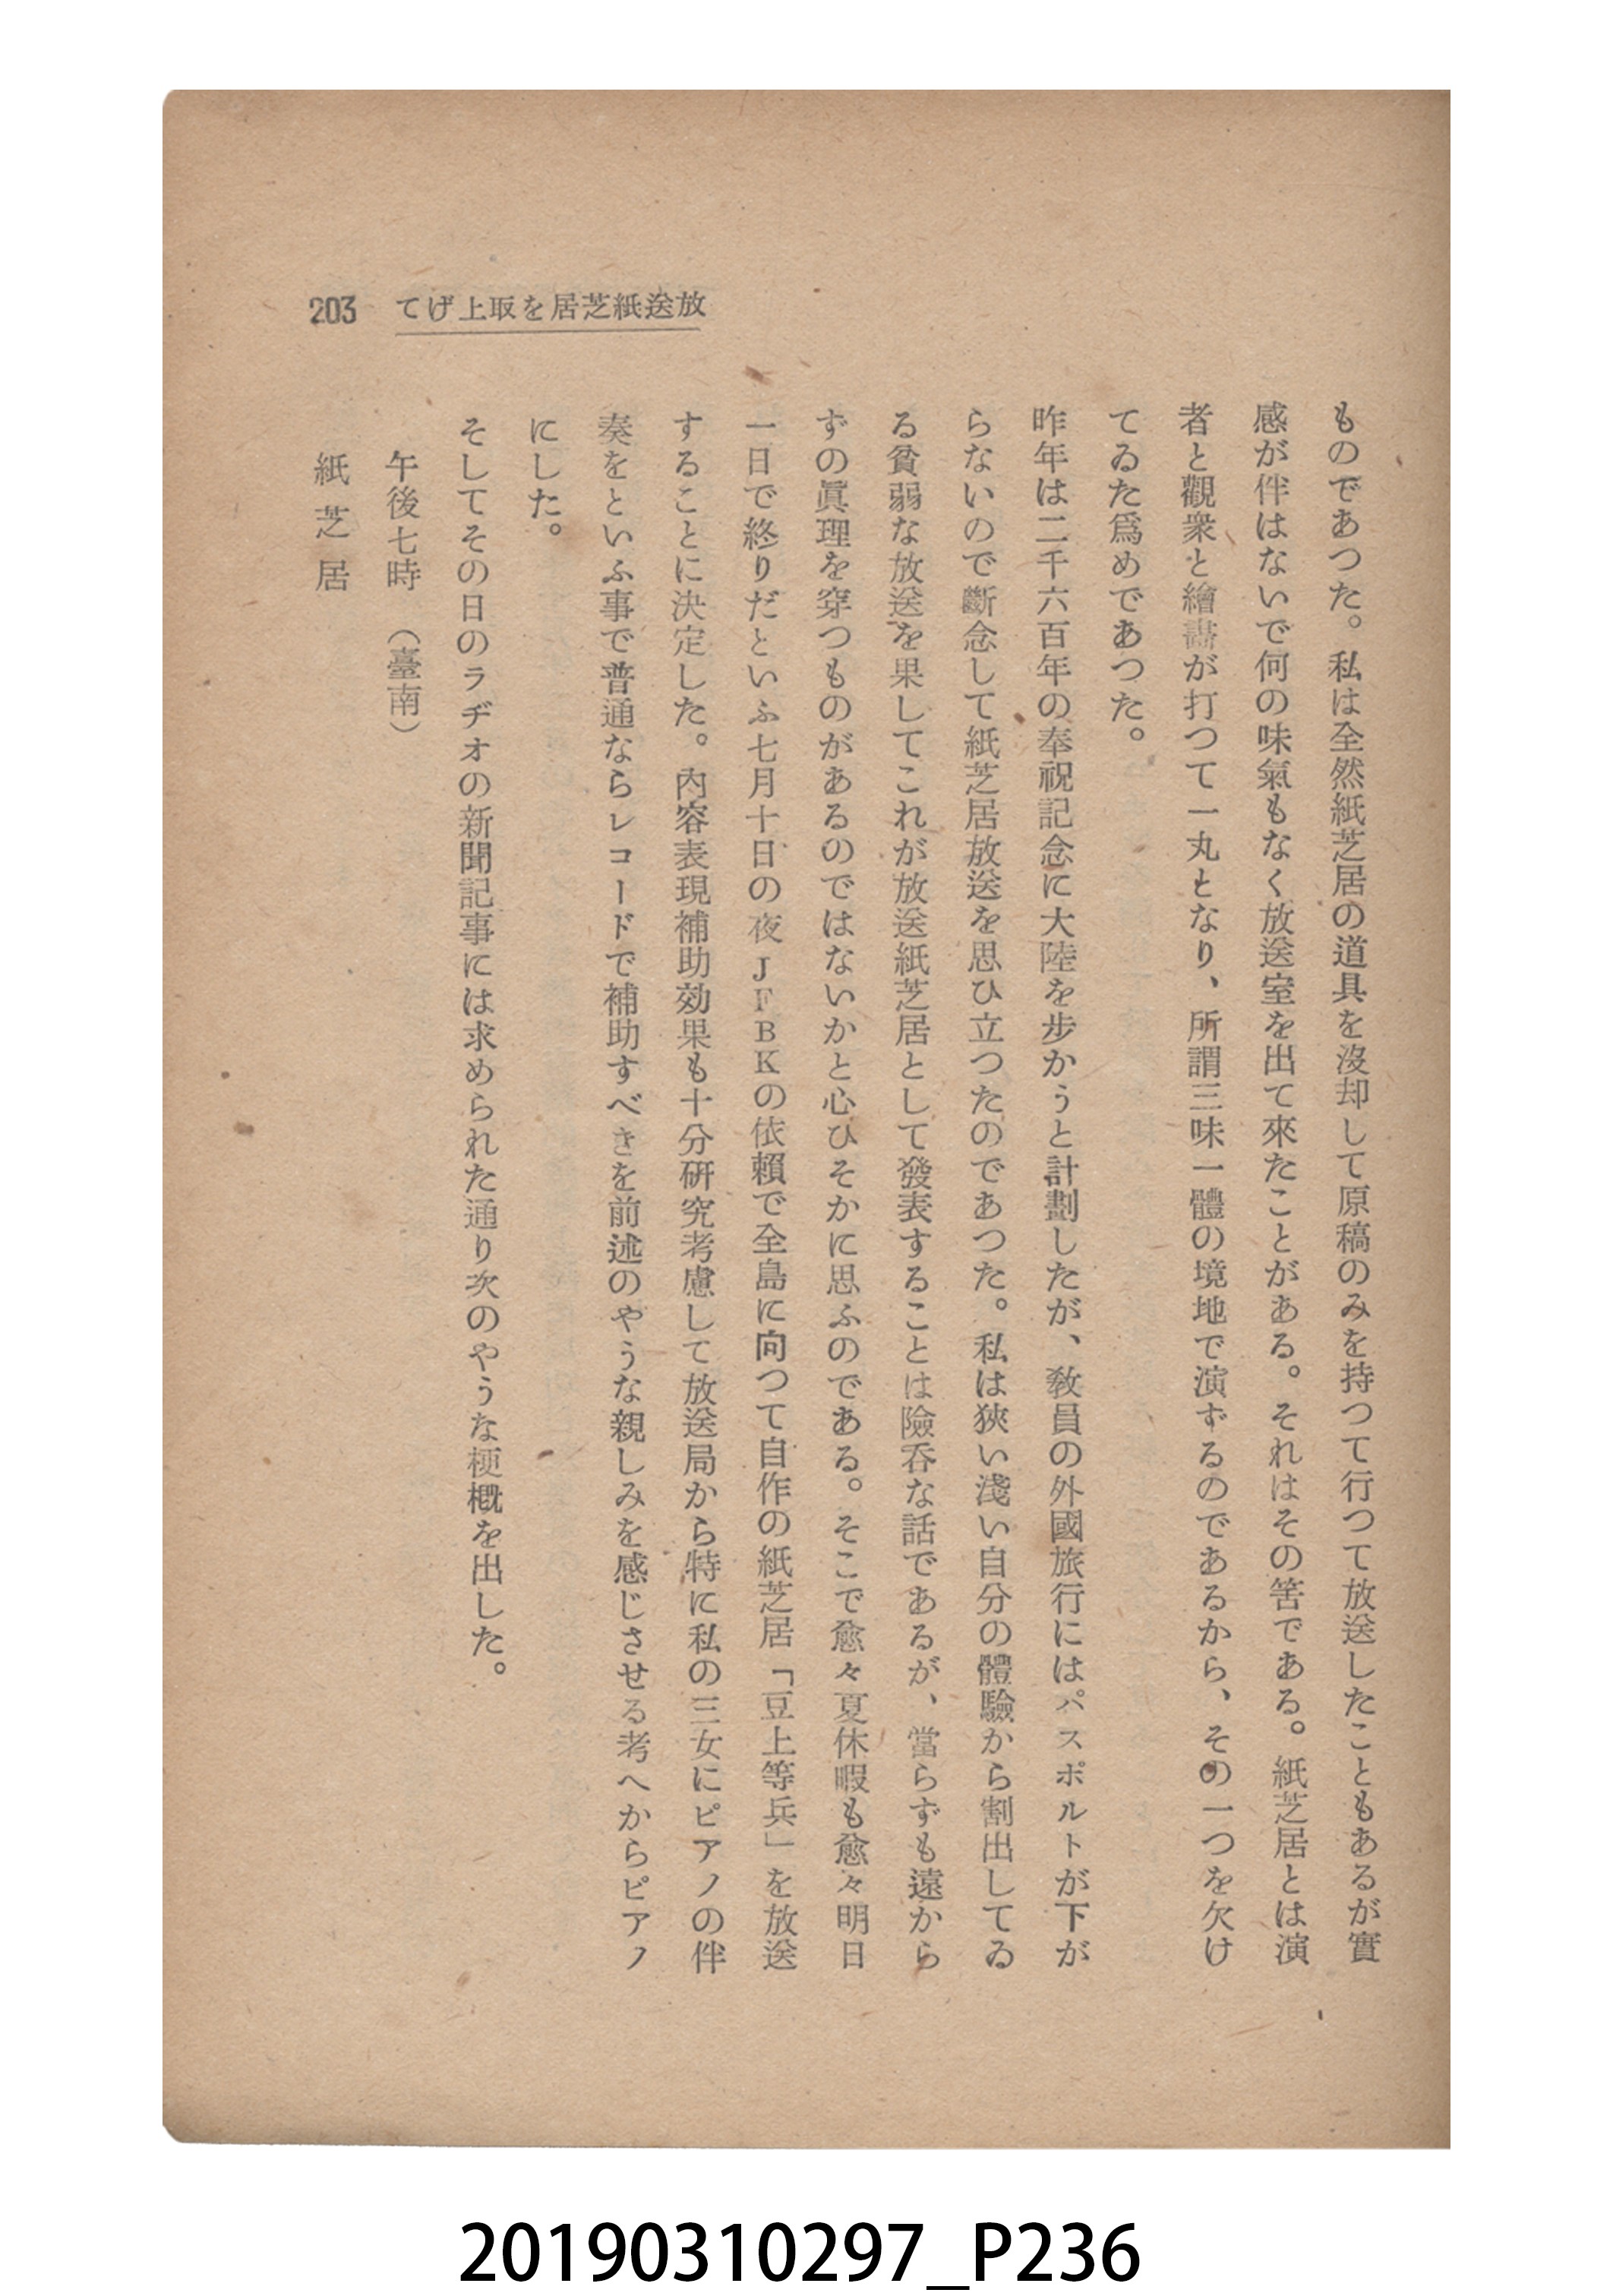 203 てげ上取を居芝紙送放
ものであつた。私は全然紙芝居の道具を沒却して原稿のみを持つて行つて放送したこともあるが實
感が伴はないで何の味氣もなく放送室を出て來たことがある。それはその筈である。紙芝居とは演
者と觀衆と繪畵が打つて一丸となり、所謂三味一體の境地で演ずるのであるから、その一つを欠け
てゐた爲めであつた。
昨年は二千六百年の奉祝記念に大陸を步かうと計劃したが、敎員の外國旅行にはパスポルトが下が
らないので斷念して紙芝居放送を思ひ立つたのであつた。私は狹い淺い自分の體驗から割出してゐ
る貧弱な放送を果してこれが放送紙芝居として發表することは險呑な話であるが、當らずも遠から
ずの眞理を穿つものがあるのではないかと心ひそかに思ふのである。そこで愈々夏休暇も愈々明日
一日で終りだといふ七月十日の夜JFBKの依賴で全島に向つて自作の紙芝居「豆上等兵」を放送
することに決定した。內容表現補助効果も十分硏究考慮して放送局から特に私の三女にピアノの伴
奏をといふ事で普通ならレコードで補助すべきを前述のやうな親しみを感じさせる考へからピアノ
にした。
そしてその日のラヂオの新聞記事には求められた通り次のやうな梗槪を出した。
午後七時 （臺南）
紙芝居
20190310297_P236